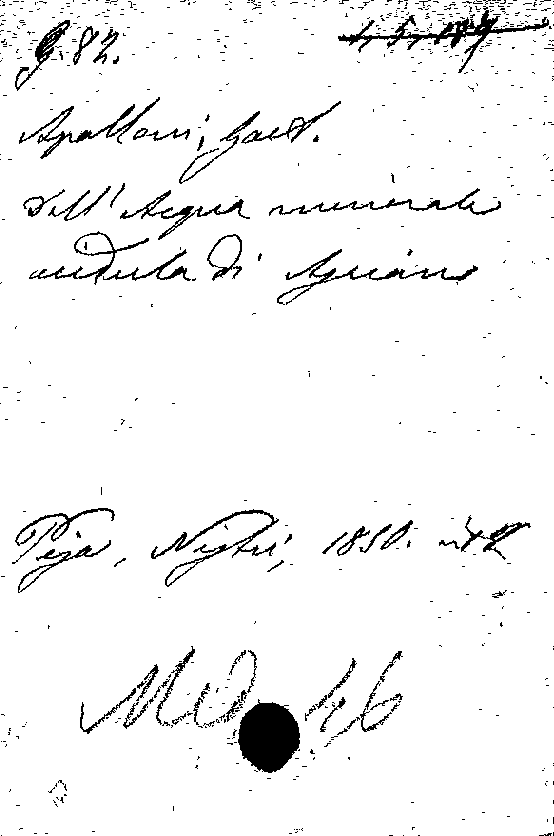 G. 82.
Apolloni, Gaet.
Dell' Acqua minerale
acidula di Asciano
Pisa, Nistri, 1850. in 12
MD 46